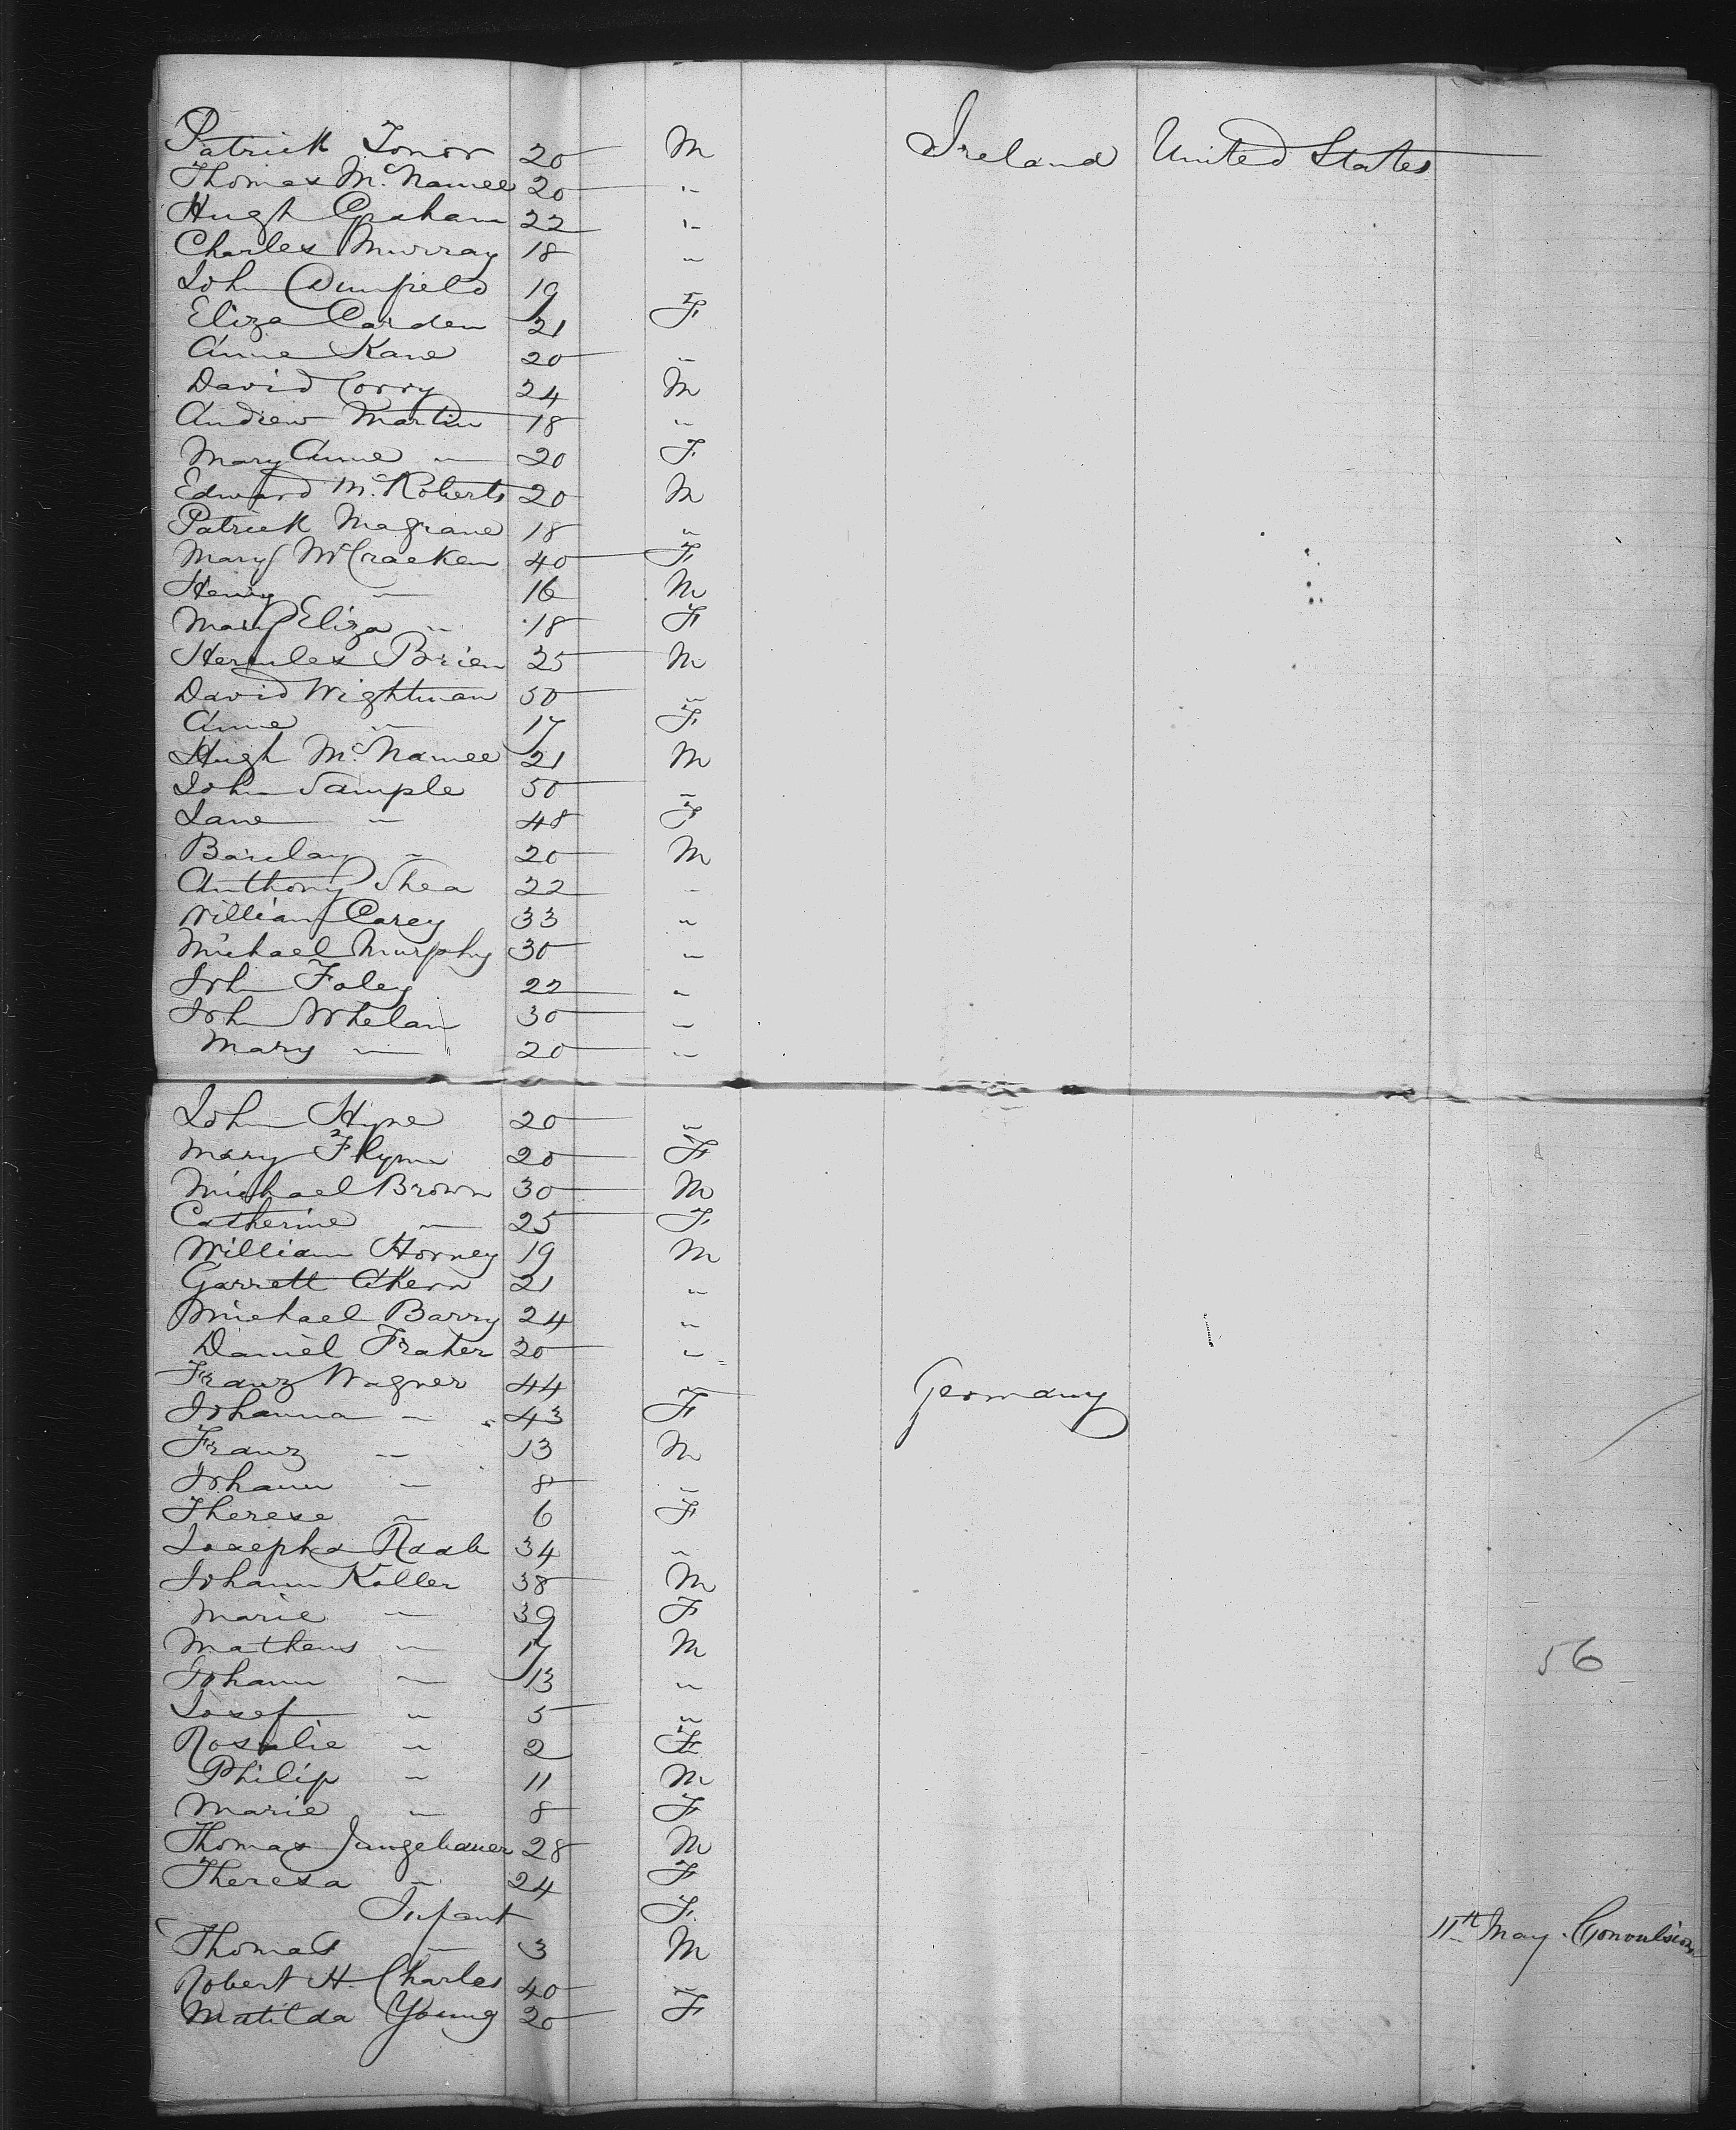 Patrick Tonor 20 M Ireland United States
Thomas McNamee 20 "
Hugh Graham 22 "
Charles Murray 18 "
John Dumfield 19 "
Eliza Carden 21 F
Anne Kane 20 "
David Corry 24 M
Andrew Martin 18 "
Mary Anne " 20 F
Edward McRoberts 20 M
Patrick Magrane 18 "
Mary McCracken 40 F
Henry " 16 M
Mary Eliza " 18 F
Hercules Brien 25 M
David Wightman 50 "
Anne " 17 F
Hugh McNamee 21 M
John Sample 50 "
Jane " 48 F
Barclay " 20 M
Anthony Shea 22 "
William Carey 33 "
Michael Murphy 30 "
John Foley 22 "
John Whelan 30 "
Mary " 20 "
John Hyne 20 "
Mary Flynn 20 F
Michael Brown 30 M
Catherine " 25 F
William Horney 19 M
Garrett Ahern 21 "
Michael Barry 24 "
Daniel Fraher 20 "
Franz Wagner 44 " Germany
Johanna " 43 F
Franz " 13 M
Johann " 8 "
Therese " 6 F
Josepha Raab 34 "
Johann Koller 38 M
Marie " 39 F
Matheus " 17 M
Johann " 13 "
Josef " 5 "
Rosalie " 2 F
Philip " 11 M
Marie " 8 F
Thomas Jungebauer 28 M
Theresa " 24 F
Infant F 11th May. Convulsions
Thomas " 3 M
Robert H. Charles 40 "
Matilda Young 20 F
56